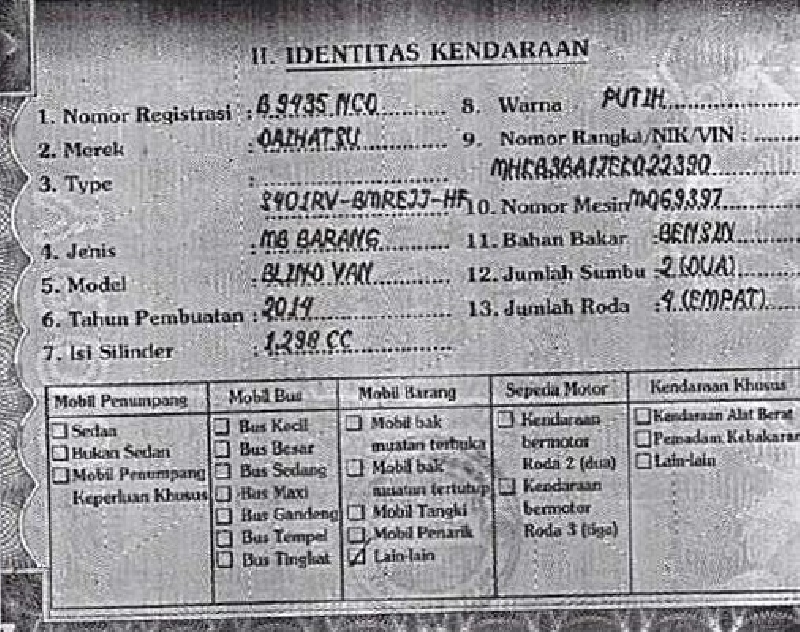 II. IDENTITAS KENDARAAN
1. Nomor Registrasi : B 9435 NCO
2. Merek : DAIHATSU
3. Type :
S401RV-BMREJJ-HF
4. Jenis : MB BARANG
5. Model : BLIND VAN
6. Tahun Pembuatan : 2014
7. Isi Silinder : 1.298 CC
8. Warna : PUTIH
9. Nomor Rangka/NIK/VIN :
10. Nomor Mesin
11. Bahan Bakar : BENSIN
12. Jumlah Sumbu : 2 (DUA)
13. Jumlah Roda : 4 (EMPAT)
Mobil Penumpang
Sedan
Bukan Sedan
Mobil Penumpang
Keperluan Khusus
Mobil Bus
Bus Kecil
Bus Besar
Bus Sedang
Bus Maxi
Bus Gandeng
Bus Tempel
Bus Tingkat
Mobil Barang
Mobil bak
muatan terbuka
Mobil bak
muatan tertutup
Mobil Tangki
Mobil Penarik
Lain-lain
Sepeda Motor
Kendaraan
bermotor
Roda 2 (dua)
Kendaraan
bermotor
Roda 3 (tiga)
Kendaraan Khusus
Kendaraan Alat Berat
Pemadam Kebakaran
Lain-lain